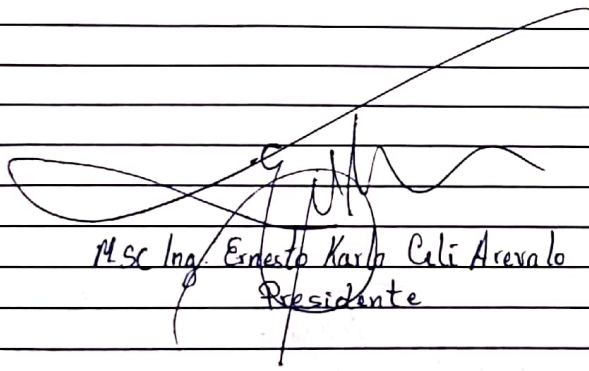 MSc Ing. Ernesto Karlo Celi Arevalo
Presidente